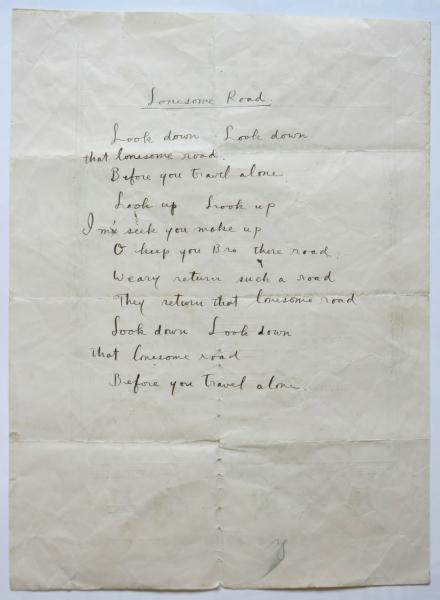 Lonesome Road.
Look down Look down
that lonesome road.
Before you travel alone
Look up Look up
I seek you make up
O keep you Bro there road.
Weary return such a road
They return that lonesome road
Look down Look down
that lonesome road
Before you travel alone.